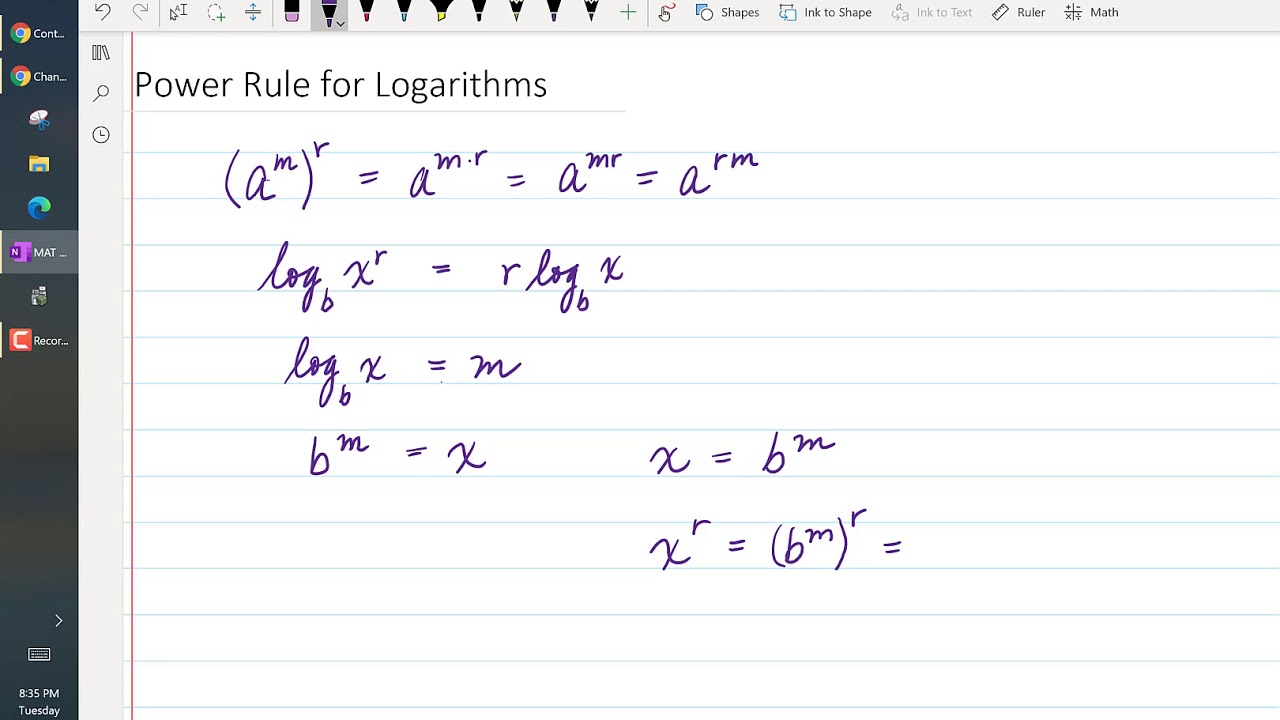 Shapes Ink to Shape Ink to Text Ruler Math
Cont...
Chan...
MAT ...
Recor...
8:35 PM
Tuesday
Power Rule for Logarithms
(a^m)^r = a^{m·r} = a^{mr} = a^{rm}
log_b x^r = r log_b x
log_b x = m
b^m = x x = b^m
x^r = (b^m)^r =